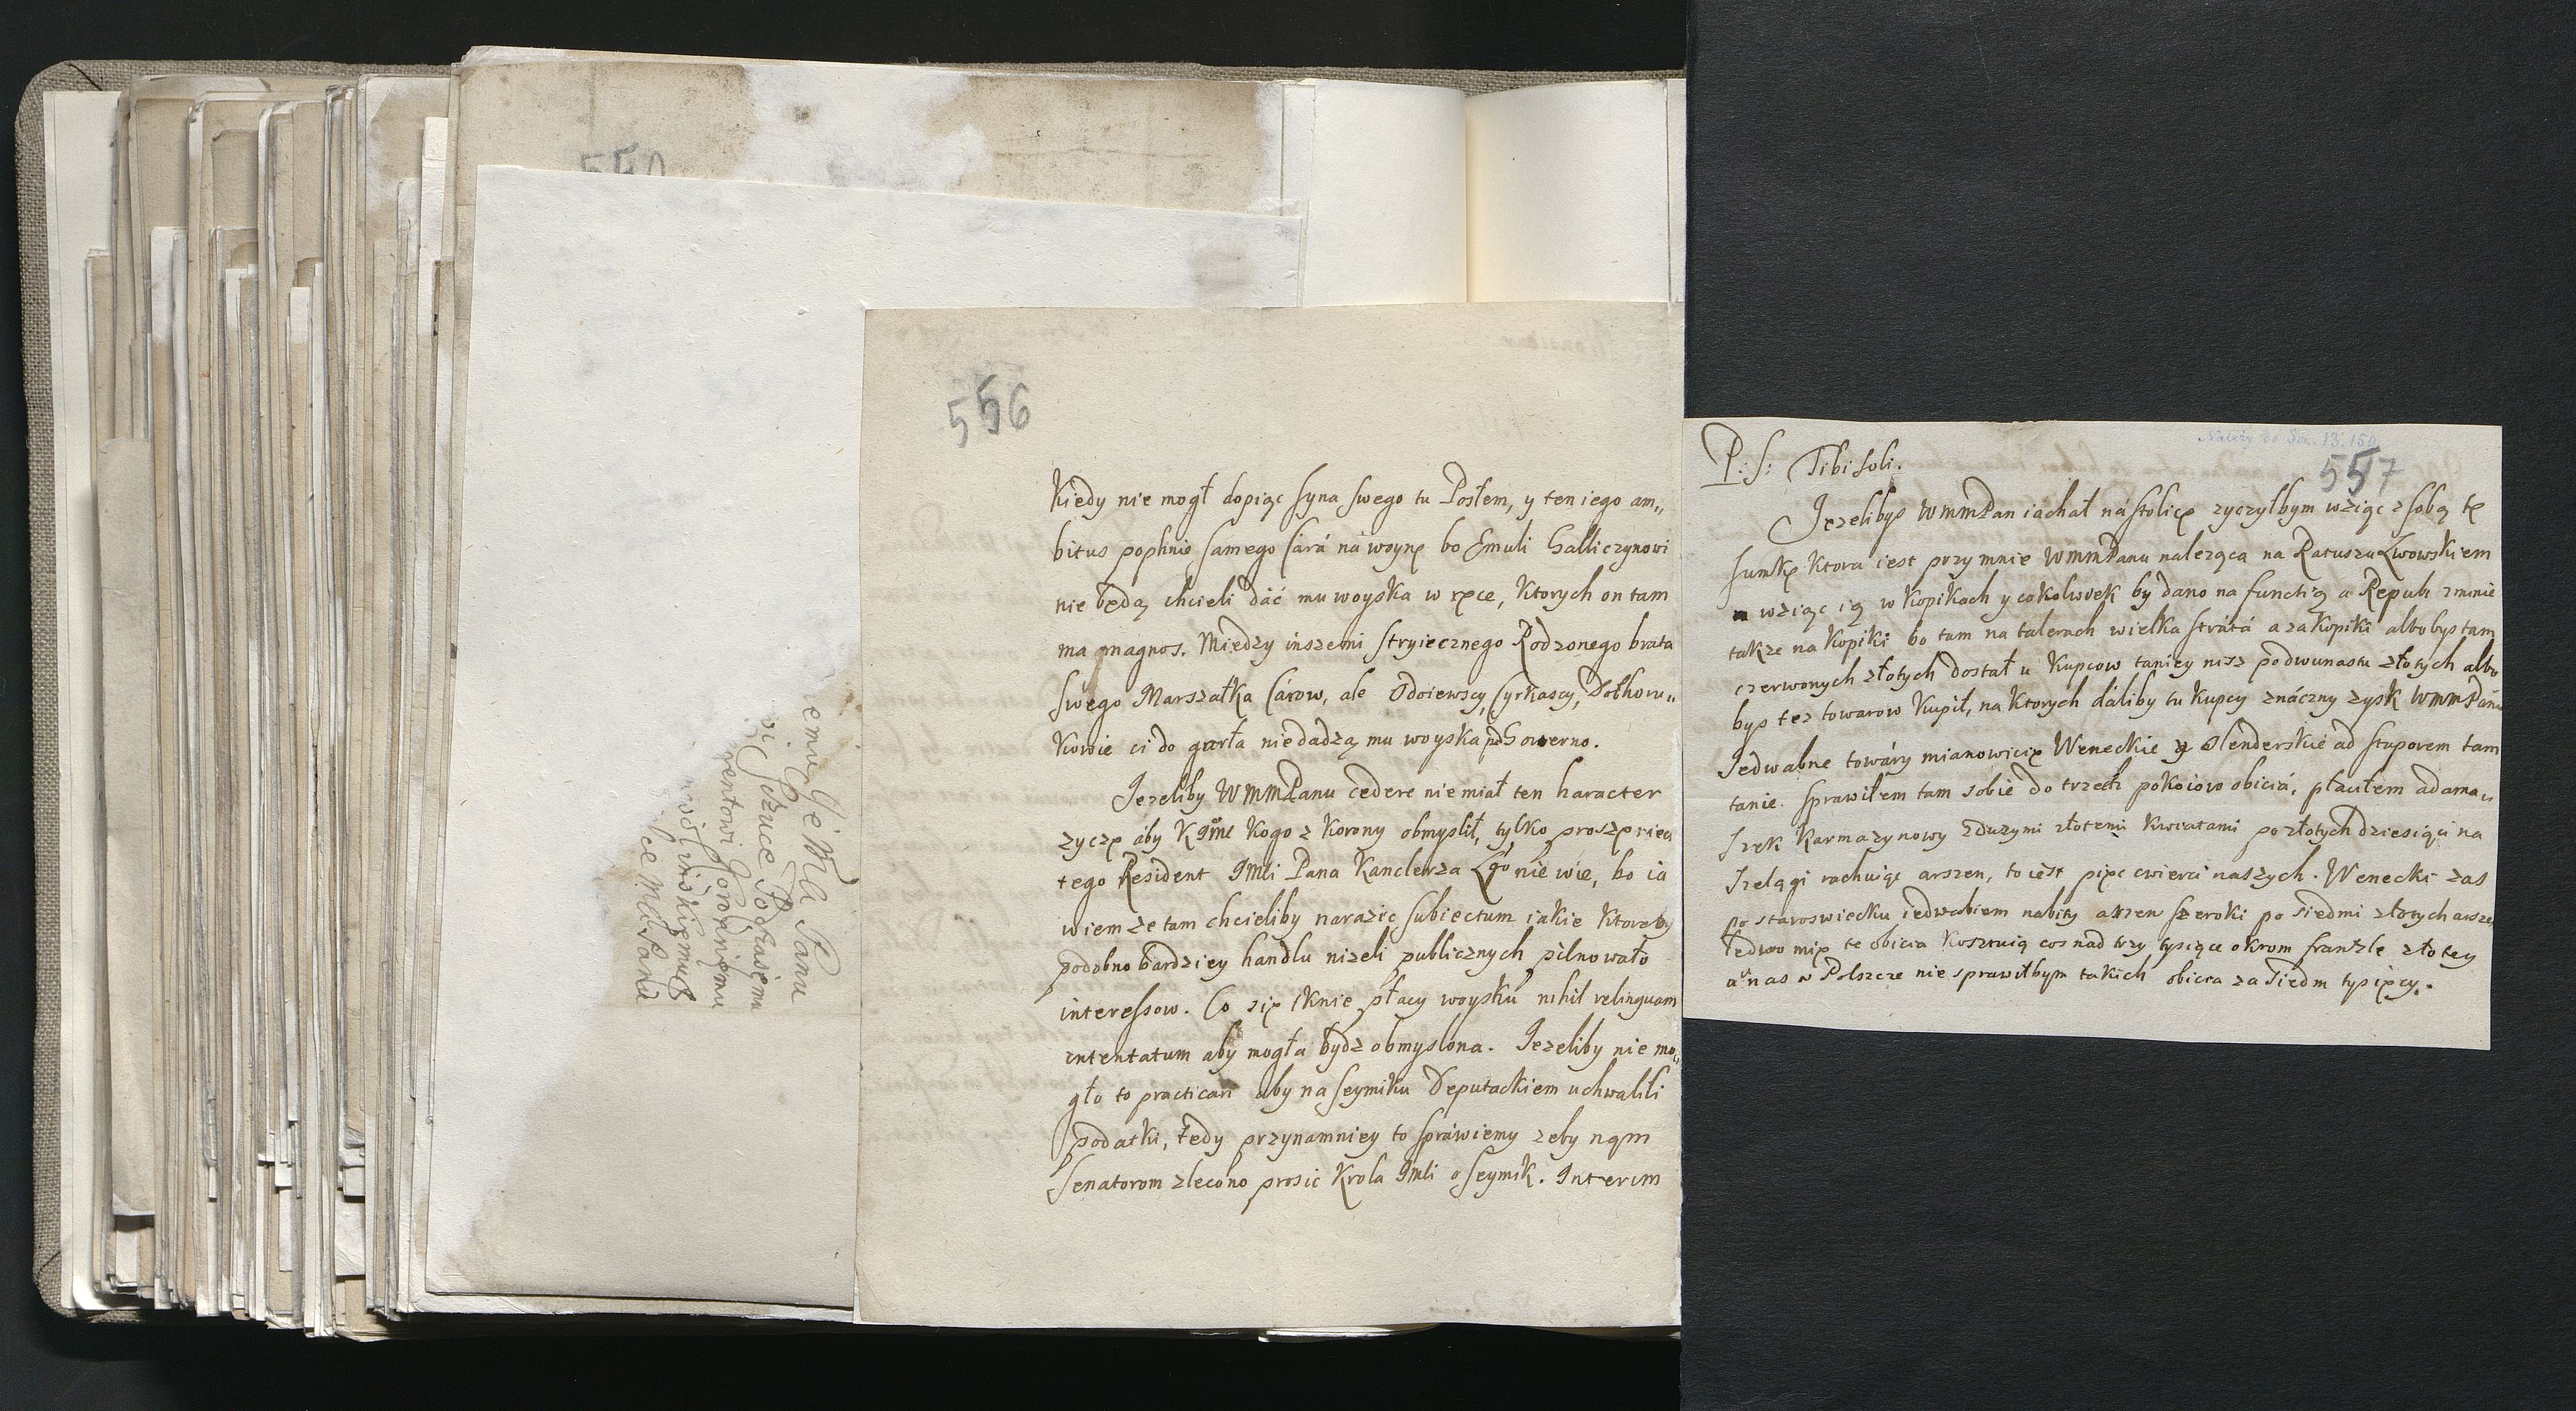 550
emu Je Mła Panu
Łożuce Podkasiemu
rentowi Gorąnięmu
556
Kiedy nie mogł dopiąc syna swego tu Posłem, y ten iego am„
bitus pophnie samego Cárá ná woynę bo Emuli Galliczynowi
nie będą chcieli dáć mu woyska w ręce, Ktorych on tam
ma magnos. Między inszemi stryiecznego Rodzonego brata
swego Marszałka Cárow, ale Odoiewscy, Cyrkascy, Dołhoru„
Kowie ci do garła niedadzą mu woyska pod Gowerno.
Iezeliby WMMPanu cedere nie miał ten haracter
zyczę áby KJMć Kogo z Korony obmyslił, tylko proszę niech
tego Resident JMći Pana Kanclerza Lgo nie wie, bo ia
wiem ze tam chcieliby narazic subiectum iakie Ktoreby
podobno bardziey handlu nizeli publicznych pilnowało
interessow. Co się tknie płacy woysku nihil relinquam
intentatum aby mogła bydz obmyslona. Iezeliby nie mo„
gło to practicari aby na seymiku Deputackiem uchwalili
podatki, tedy przynamniey to spráwiemy zeby nam
Senatorom zlecono prosic Krola JMći o seymik. Interim
Należy do Sza. 13. 150.
557
P: S: Tibi soli.
Jezelibys WMMPan iachał ná stolicę zyczyłbym wziąc z sobą tę
sumkę Ktora iest przy mnie WMMPanu nalezącą na Ratuszu Lwowskiem
wziąc ią w Kopikach y cokolwiek by dano na functią a Repub: zmienic
takze na Kopiki bo tam na talerach wielka stratá a za Kopiki albo bys tam
czerwonych złotych dostał u Kupcow taniey nisz podwunastu złotych albo
bys tez towarow Kupił, na Ktorych dáliby tu Kupcy znáczny zysk WMMPánu
Jedwabne towáry mianowicie Weneckie y Olenderskie ad stuporem tam
tanie. Sprawiłem tam sobie do trzech pokoiow obiciá, płaciłem adama„
szek Karmazynowy z duzymi złotemi Kwiatami po złotych dziesiąci na
szelągi rachuiąc arszen, to iest pięc cwierci naszych. Wenecki zas
po staroswiecku iedwabiem nabity arszen szeroki po siedmi złotych arszen
ledwo mię te obicia Kosztuią cos nad trzy tysiące okrom frantzle złotey
a u nas w Polszcze nie sprawiłbym takich obicia za siedm tysięcy.